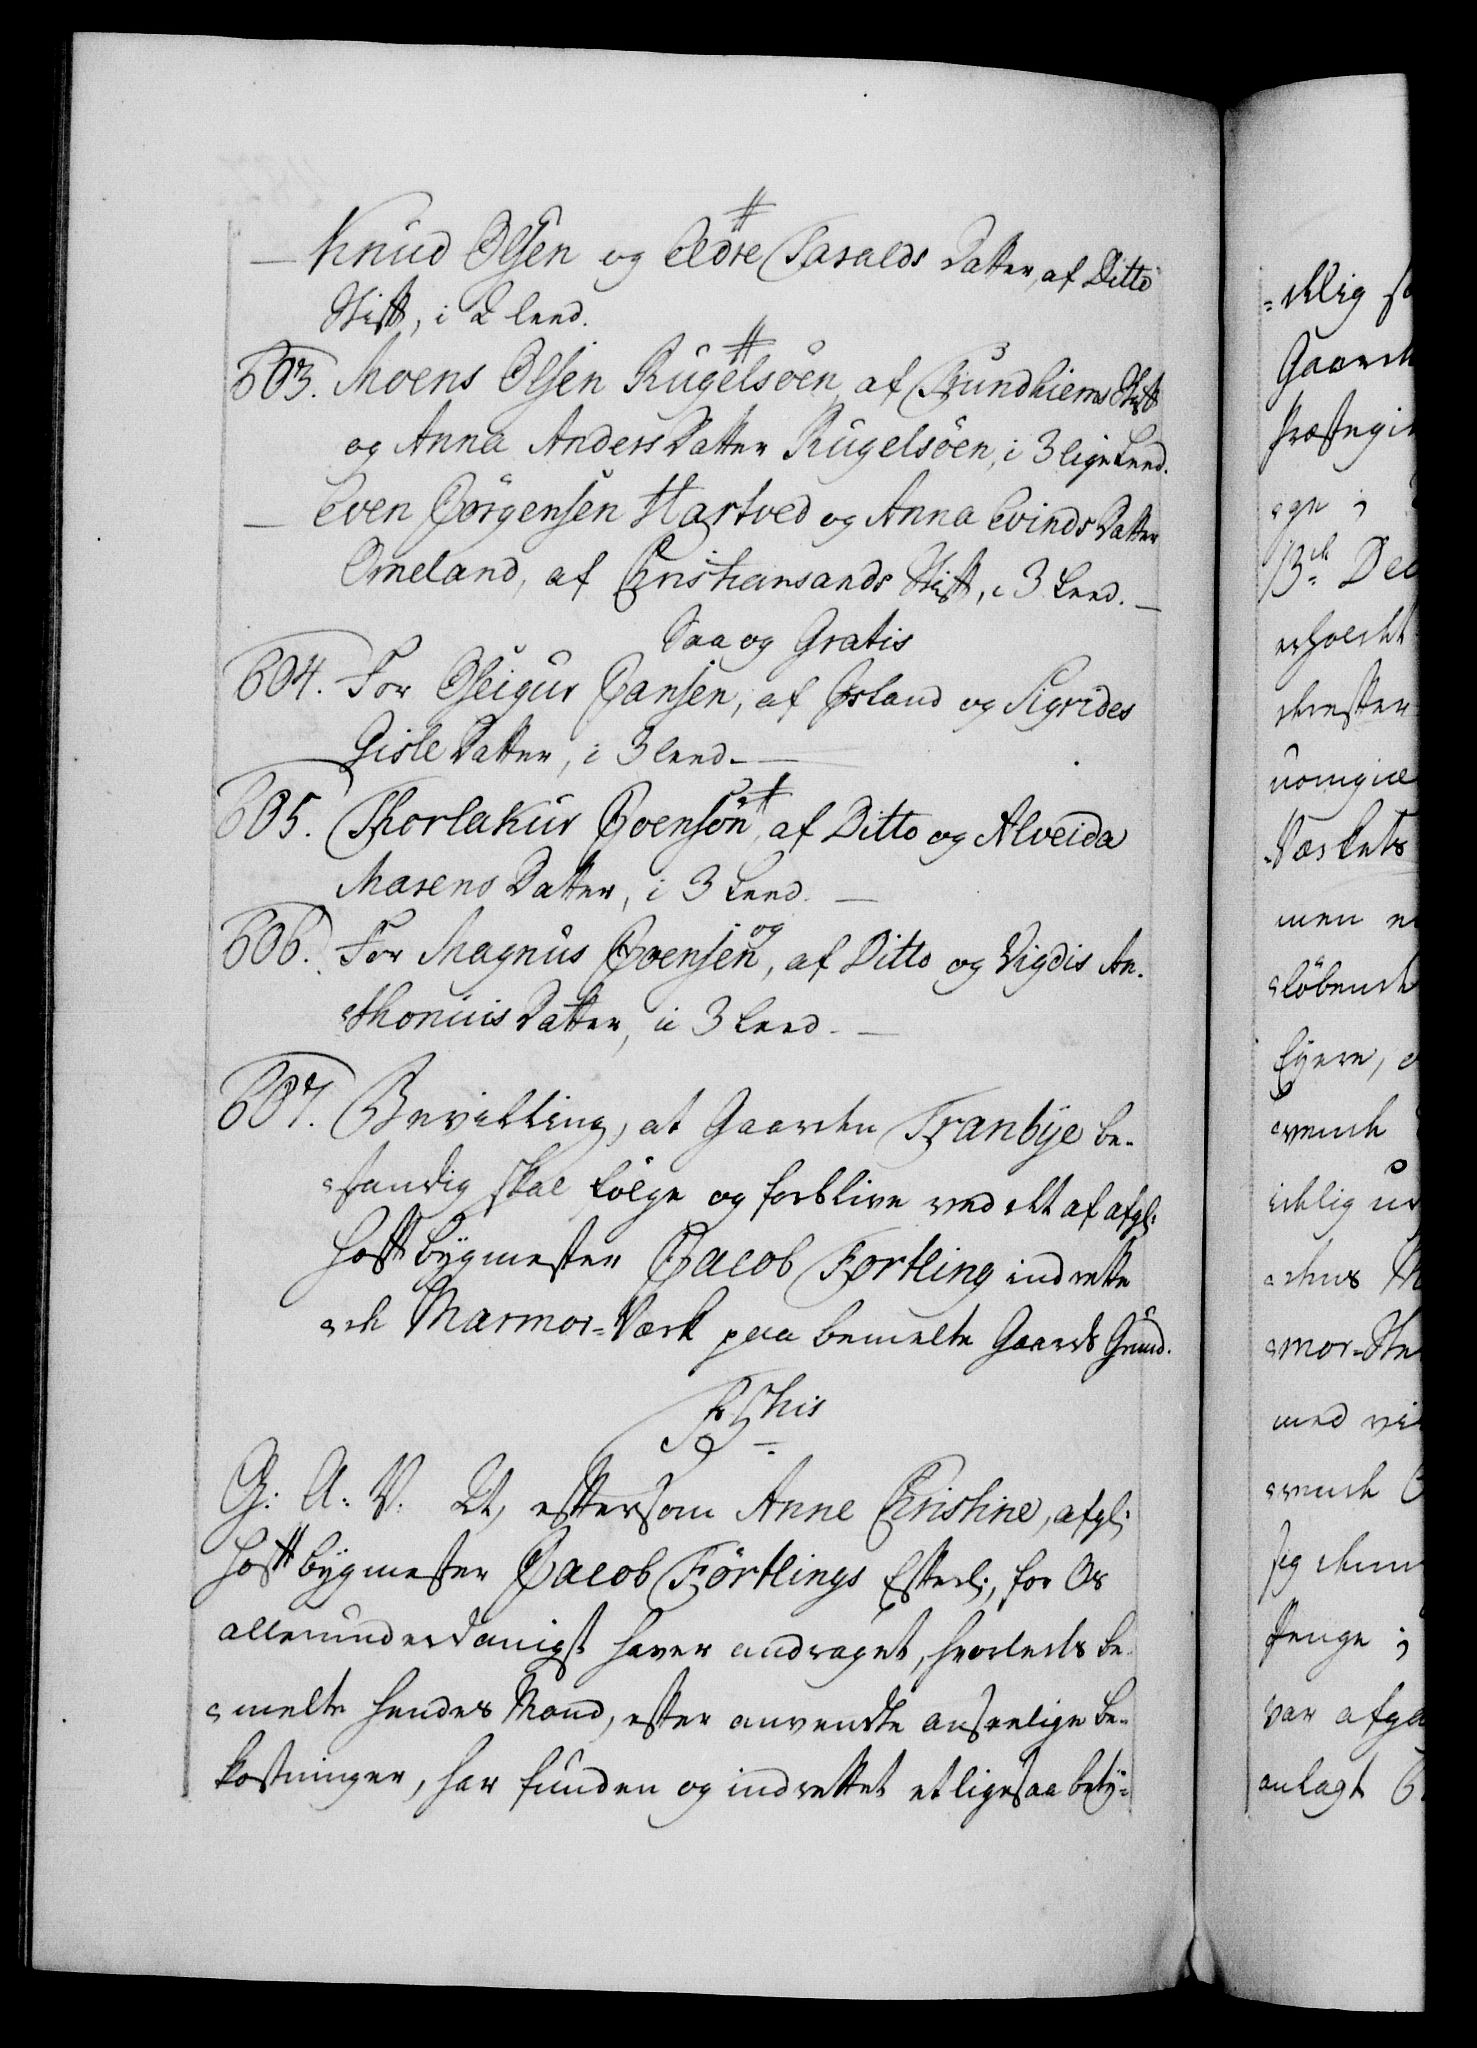 — Knud Olsen og Eldre Taralds Datter, af Ditto
Stift, i 2 Leed.
603. Moens Olsen Rugelsøen, af Trundhiems Stift
og Anna Anders Datter Rugelsøen, i 3 lige Leed.
— Even Jørgensen Hartved og Anna Evinds Datter
Omeland, af Christiansands Stift, i 3 Leed. —
Saa og Gratis
604. For Oleigur Jansen, af Island og Sigrides
Gisle Datter, i 3 Leed. —
605. Thorlakur Joensøn, af Ditto og Alveida
Marens Datter, i 3 Leed. —
606. For Magnus Joensen, af Ditto og Vigdis An-
thonius Datter, i 3 Leed. —
607. Bevilling, at Gaarden Tranbÿe be-
standig skal følge og forblive ved det af afg:
Hoffbÿgmester Jacob Fortling indrette
de Marmor-Værk paa bemelte Gaards Grund.
G: A: V. At, eftersom Anne Christine, afg:
Hoffbÿgmester Jacob Förtlings Efterl:, for Os
allerunderdanigst haver andraget, hvorleds be-
melte hendes Mand, efter anvendte anseelige Be-
kostninger, har funden og indrettet et ligesaa betÿ-
=delig
Gaard
Præstegi
13de Dec
men
løbende
Eÿere,
Penge ;
var afg
anlagt